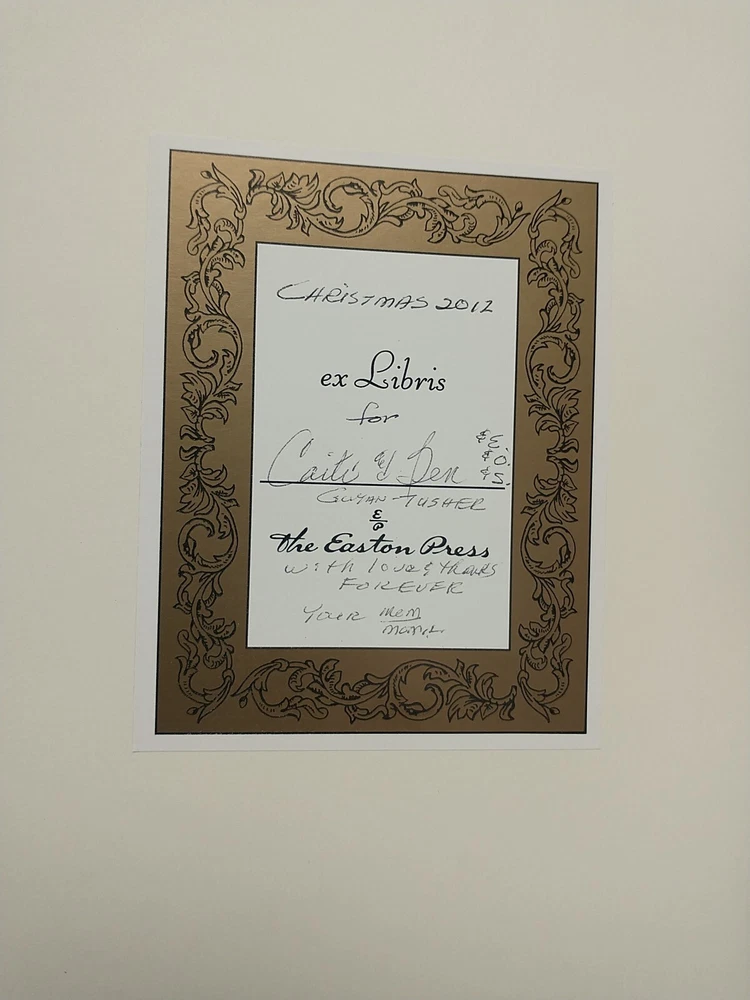 CHRISTMAS 2012
ex Libris
for
Caiti & Ben
& E.
& O.
& S.
TUSHER
E/P
The Easton Press
with love & thanks
FOREVER
Your mem